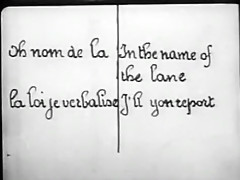 Oh nom de la
la loi je verbalise
In the name of
the lane
I'll yon report